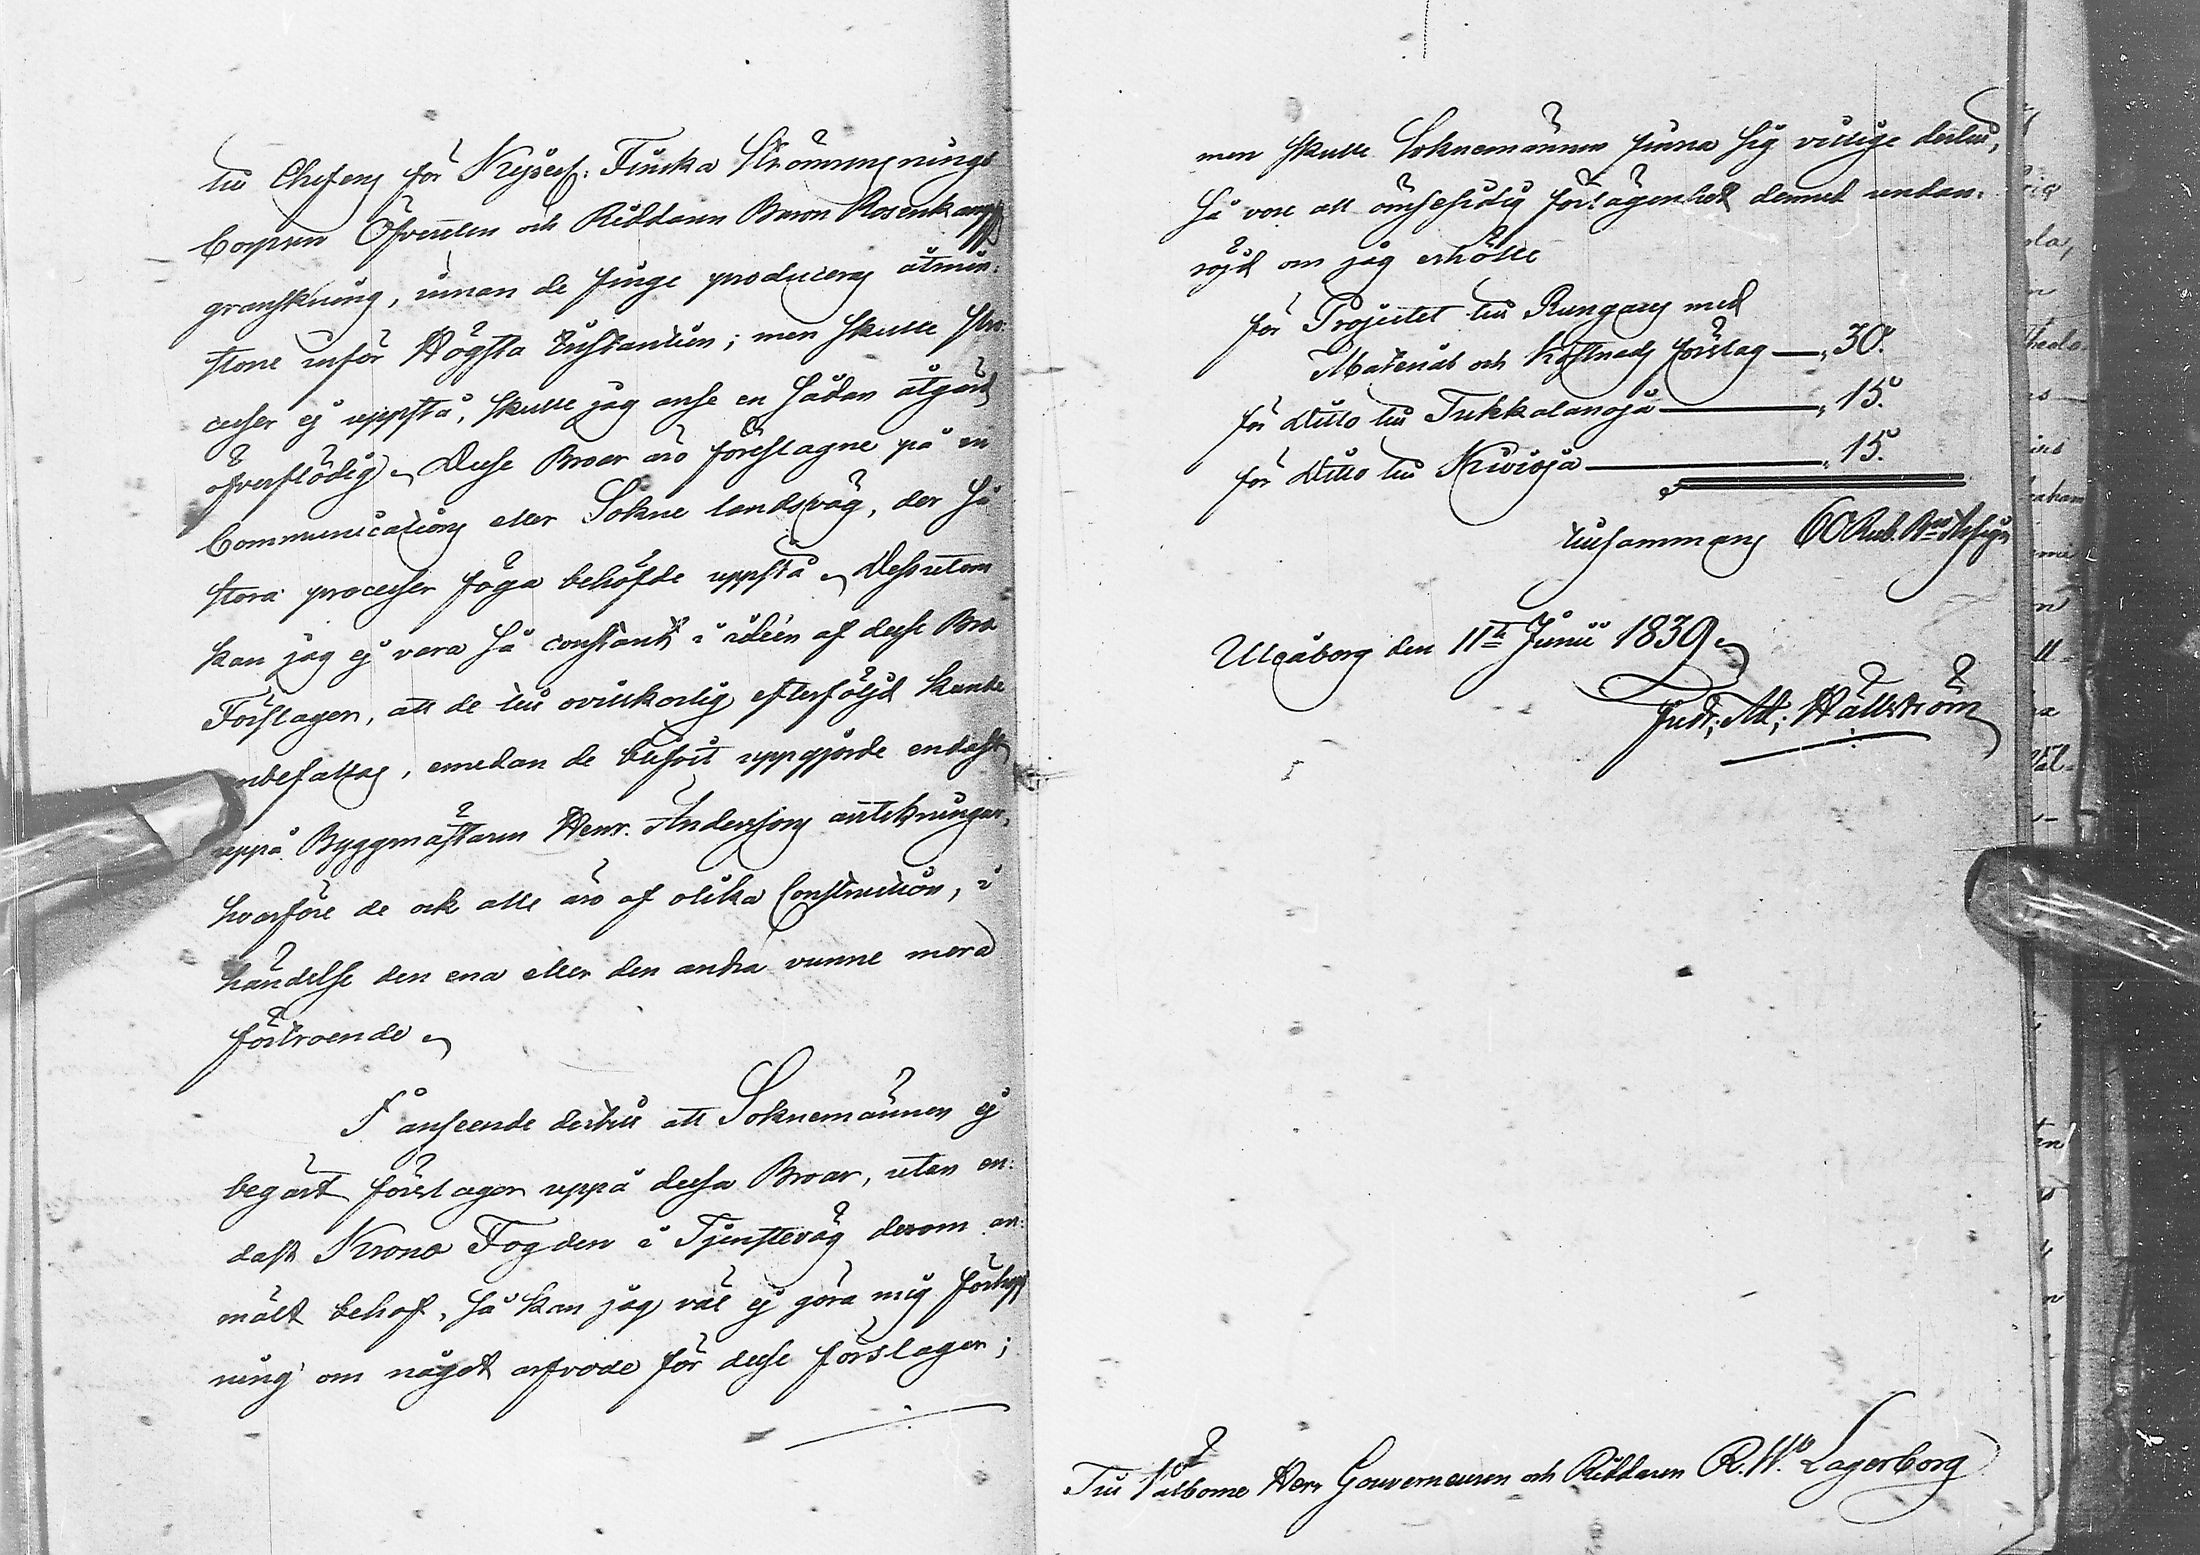 till Chefens för Kejserl: Finska Strömrensnings
Corpsen Öfversten och Riddaren Baron Rosenkampff
granskning, innan de finge produceras åtmin-
stone inför Högsta Instantien; men skulle pro-
cesser ej uppstå, skulle jag anse en sådan åtgärd
öfverflödig. Desse Broar äro föreslagne på en
Communications eller Sokne landsväg, der så
stora processer föga behöfde uppstå. Dessutom
kan jag ej vara så constant i idéen af desse Bro
Förslager, att de till ovillkorlig efterföljd kunde
anbefallas, emedan de blifvit uppgjorde endast
uppå Byggmästaren Henr. Anderssons anteckningar,
hvarföre de ock alle äro af olika Construction, i
händelse den ena eller den andra vunne mera
förtroende.
I anseende dertill att Soknemännen ej
begärt förslager uppå dessa Broar, utan en-
dast Krono Fogden i Tjensteväg derom an-
mält behof, så kan jag väl ej göra mig förhopp
ning om något arfvode för desse förslager;
men skulle Soknemännen finna sig villige dertill,
så vore all ömsesidig förlägenhet dermed undan-
röjd om jag erhölle
för Projectet till Rungars med
Material och Kostnads förslag — „ 30.
för Ditto till Tukkalanoja — „ 15.
för Ditto till Kivioja — „ 15.
tillsammans 60 Rub. Bco Assign
Uleåborg den 11te Junii 1839.
Gust: Ad: Hällström
Till Välborne Herr Gouverneuren och Riddaren R. W. Lagerborg